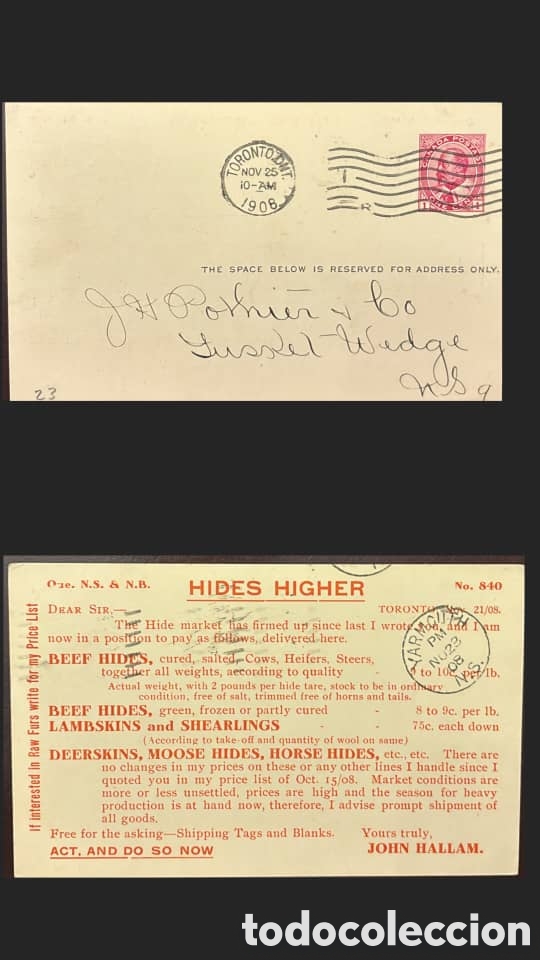 TORONTO, ONT.
NOV 25
10-AM
1908
CANADA POSTAGE
1 1
R
THE SPACE BELOW IS RESERVED FOR ADDRESS ONLY.
J H Pothier & Co
Tusket Wedge
N S
23
9
Que. N.S. & N.B.
HIDES HIGHER
No. 840
DEAR SIR,—
TORONTO, Nov. 21/08.
The Hide market has firmed up since last I wrote you, and I am
now in a position to pay as follows, delivered here.
BEEF HIDES, cured, salted, Cows, Heifers, Steers,
together all weights, according to quality - 9 to 10c. per lb.
Actual weight, with 2 pounds per hide tare, stock to be in ordinary
condition, free of salt, trimmed free of horns and tails.
BEEF HIDES, green, frozen or partly cured - 8 to 9c. per lb.
LAMBSKINS and SHEARLINGS - - 75c. each down
(According to take-off and quantity of wool on same)
DEERSKINS, MOOSE HIDES, HORSE HIDES, etc., etc. There are
no changes in my prices on these or any other lines I handle since I
quoted you in my price list of Oct. 15/08. Market conditions are
more or less unsettled, prices are high and the season for heavy
production is at hand now, therefore, I advise prompt shipment of
all goods.
Free for the asking—Shipping Tags and Blanks. Yours truly,
ACT, AND DO SO NOW
JOHN HALLAM.
If interested in Raw Furs write for my Price List
PM
08
N.S.
todocoleccion